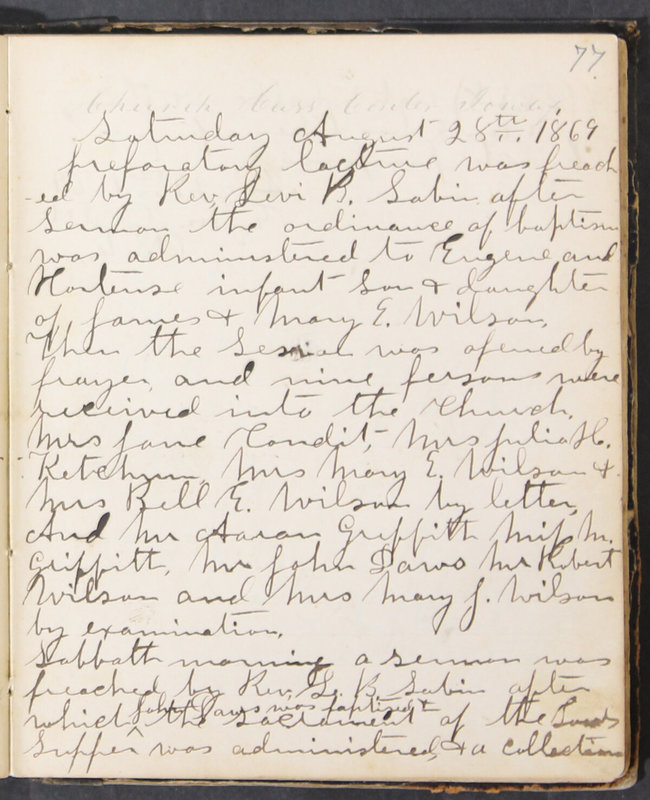 77.
Church Cass Center Iowa,
Saturday August 28th. 1869
preforatory lecture was preach
-ed by Rev. Levi B. Sabin after
Sermon the ordinance of baptism
was administered to Eugene and
Hortense infant son & daughter
of James & Mary E. Wilson,
Then the Session was opened by
prayer, and nine persons were
received into the Church,
Mrs Jane Condit, Mrs Julia H.
Ketchum, Mrs Mary E. Wilson &
Mrs Bell E. Wilson by letter,
And Mr Aaron Griffitt Miss M.
Griffitt, Mr John Daws Mr Robert
Wilson and Mrs Mary J. Wilson
by examination.
Sabbath morning a sermon was
preached by Rev. L. B. Sabin after
John Daws was baptised &
which the Sacrament of the Lords
Supper ^ was administered, & a collection